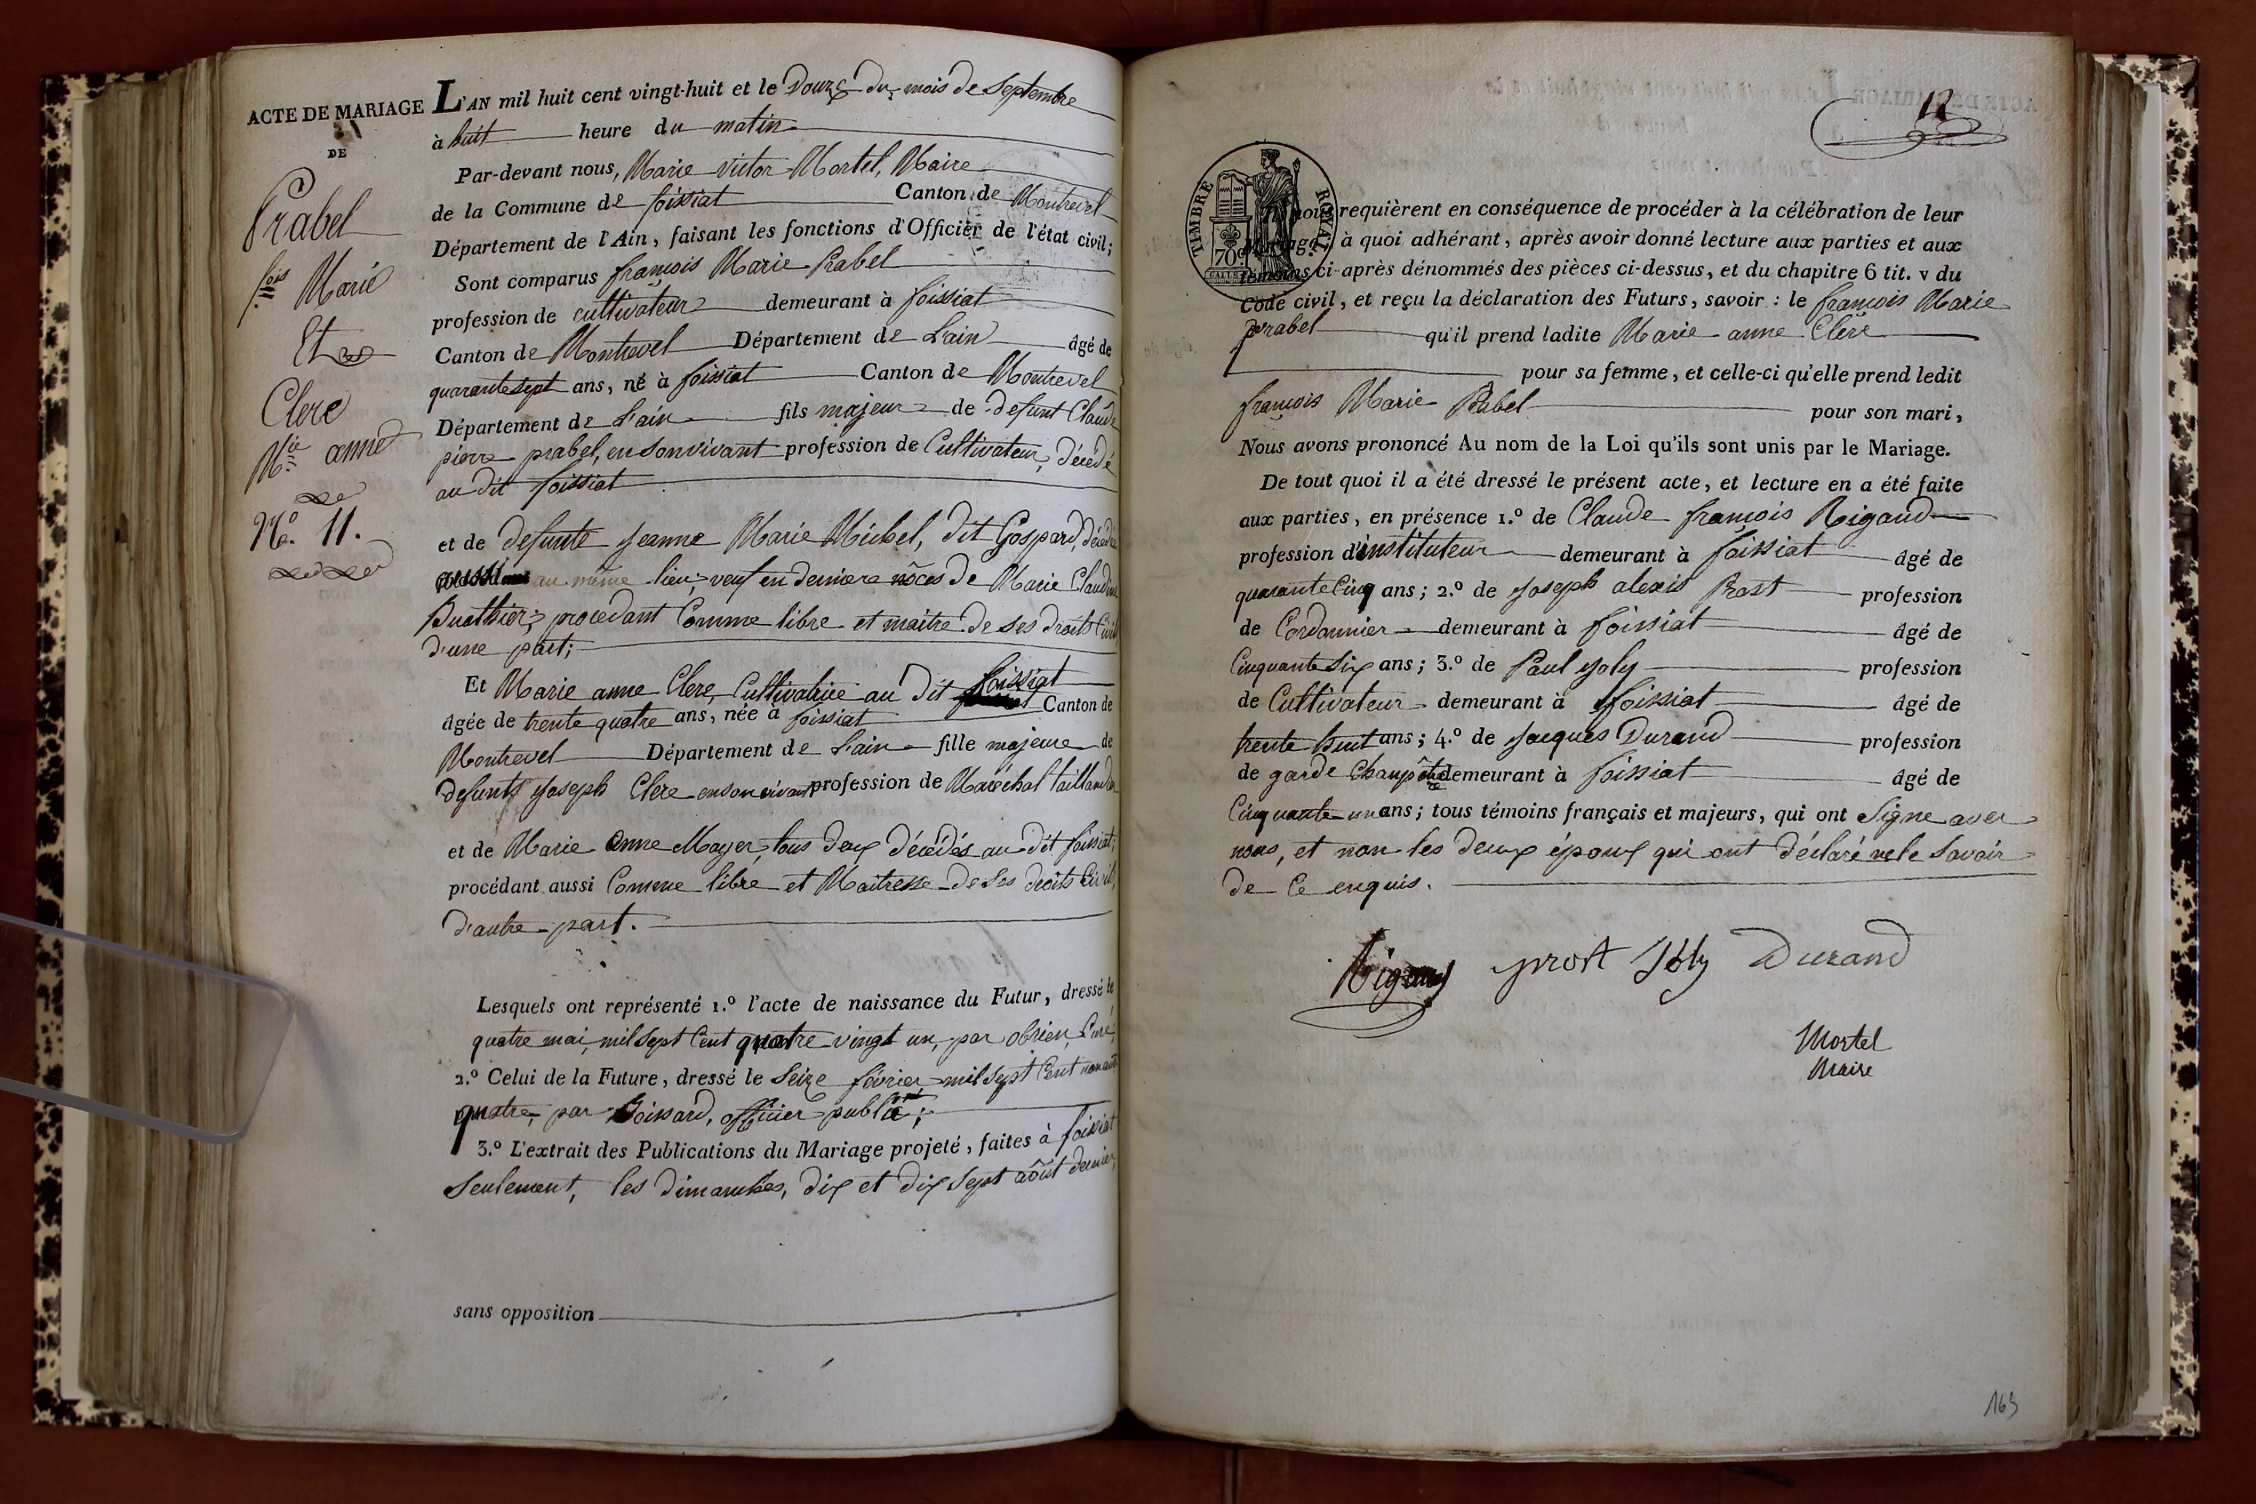 ACTE DE MARIAGE
DE
Prabel
fois Marie
Et
Clere
Mie anne
No. 11.
L'AN mil huit cent vingt-huit et le Douze du mois de Septembre
à huit heure du matin
Par-devant nous, Marie Victor Mortel, Maire
de la Commune de foissiat Canton de Montrevel
Département de l'Ain, faisant les fonctions d'Officier de l'état civil;
Sont comparus françois Marie Prabel
profession de cultivateur demeurant à foissiat
Canton de Montrevel Département de L'ain âgé de
quarante sept ans, né à foissiat Canton de Montrevel
Département de L'ain fils majeur de defunt Claude
pierre prabel, en son vivant profession de Cultivateur, décédé
au dit foissiat
et de defunte jeanne Marie Michel, dit Gospard, décédée
aussi au même lieu; veuf en derniere nôces de Marie Claudine
Buathier; procedant Comme libre et maitre de ses droits Civils
d'une part;
Et Marie anne Clere, Cultivatrice au dit foissiat
âgée de trente quatre ans, née à foissiat Canton de
Montrevel Département de L'ain fille majeure de
defunts joseph Clere en son vivant profession de Maréchal taillandier
et de Marie anne Mayer, tous deux décédés au dit foissiat;
procédant aussi Comme libre et Maitresse de ses droits Civils,
d'autre part.
Lesquels ont représenté 1.º l'acte de naissance du Futur, dressé le
quatre mai, mil sept Cent quatre vingt un, par obrien, Curé,
2.º Celui de la Future, dressé le Seize février mil sept Cent nonante
quatre, par Boissard, officier public;
3.º L'extrait des Publications du Mariage projeté, faites à foissiat
Seulement, les dimanches, dix et dix sept août dernier,
sans opposition
12
TIMBRE ROYAL
70c
nous requièrent en conséquence de procéder à la célébration de leur
mariage, à quoi adhérant, après avoir donné lecture aux parties et aux
témoins ci-après dénommés des pièces ci-dessus, et du chapitre 6 tit. v du
Code civil, et reçu la déclaration des Futurs, savoir : le françois Marie
prabel qu'il prend ladite Marie anne Clere
pour sa femme, et celle-ci qu'elle prend ledit
françois Marie Prabel pour son mari,
Nous avons prononcé Au nom de la Loi qu'ils sont unis par le Mariage.
De tout quoi il a été dressé le présent acte, et lecture en a été faite
aux parties, en présence 1.º de Claude françois Rigaud
profession d'instituteur demeurant à foissiat âgé de
quarante Cinq ans; 2.º de joseph alexis Prost profession
de Cordonnier demeurant à foissiat âgé de
Cinquante Six ans; 3.º de Paul joly profession
de Cultivateur demeurant à foissiat âgé de
trente huit ans; 4.º de jacques Durand profession
de garde Champêtre demeurant à foissiat âgé de
Cinquante un ans; tous témoins français et majeurs, qui ont Signe avec
nous, et non les deux époux qui ont déclaré ne le Savoir
de Ce enquis.
Rigaud prost Joly Durand
Mortel
Maire
163